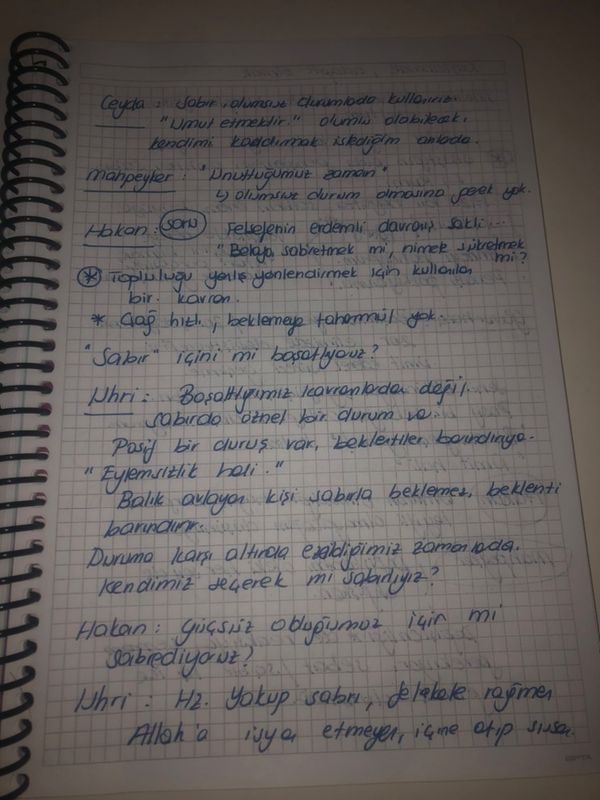 Ceyda : Sabır, olumsuz durumlada kullanırız.
"Umut etmektir." olumlu olabilecek,
kendimi kandırmak istediğim anlada.
Mahpeyker : "Unuttuğumuz zaman"
↳ olumsuz durum olmasına gerek yok.
Hakan : soru Felsefenin erdemli davranış şekli...
"Belaya sabretmek mi, nimete şükretmek
mi?
* Topluluğu yanlış yönlendirmek için kullanılan
bir kavram.
* Çağ hızlı, beklemeye tahammül yok.
"Sabır" içini mi boşaltıyoruz?
Uhri : Boşalttığımız kavramlarda değil,
sabırda öznel bir durum va
Pasif bir duruş var, beklentiler barındırıyo.
"Eylemsizlik hali."
Balık avlayan kişi sabırla beklemez, beklenti
barındırır.
Duruma karşı altında ezildiğimiz zamanlada.
kendimiz seçerek mi sabırlıyız?
Hakan : güçsüz olduğumuz için mi
sabrediyoruz?
Uhri : Hz. Yakup sabrı, felakete rağmen
Allah'a isyan etmeyen, içine atıp susan.